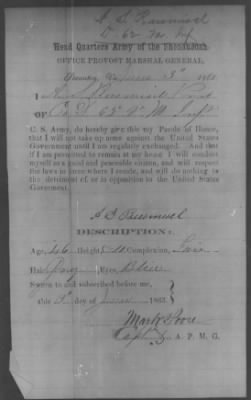 Head Quarters Army of the Shenandoah,
OFFICE PROVOST MARSHAL GENERAL,
I
OF Co. D 62 Va M Inft
C. S. Army, do hereby give this my Parole of Honor,
that I will not take up arms against the United States
Government until I am regularly exchanged. And that
if I am permitted to remain at my home I will conduct
myself as a good and peaceable citizen, and will respect
the laws in force where I reside, and will do nothing to
the detriment of, or in opposition to the United States
Goverment.
DESCRIPTION:
Age, 46 Height Complexion, Fair
Hair Gray Eyes Blue
Sworn to and subscribed before me,
this 3d day of 1865.
Mark Poore
Capt & A. P. M. G.